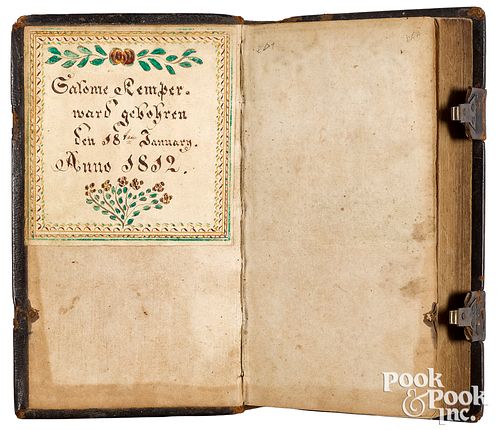 Salome Kemper.
ward gebohren
den 18ten January.
Anno 1812.
POOK
& POOK
INC.